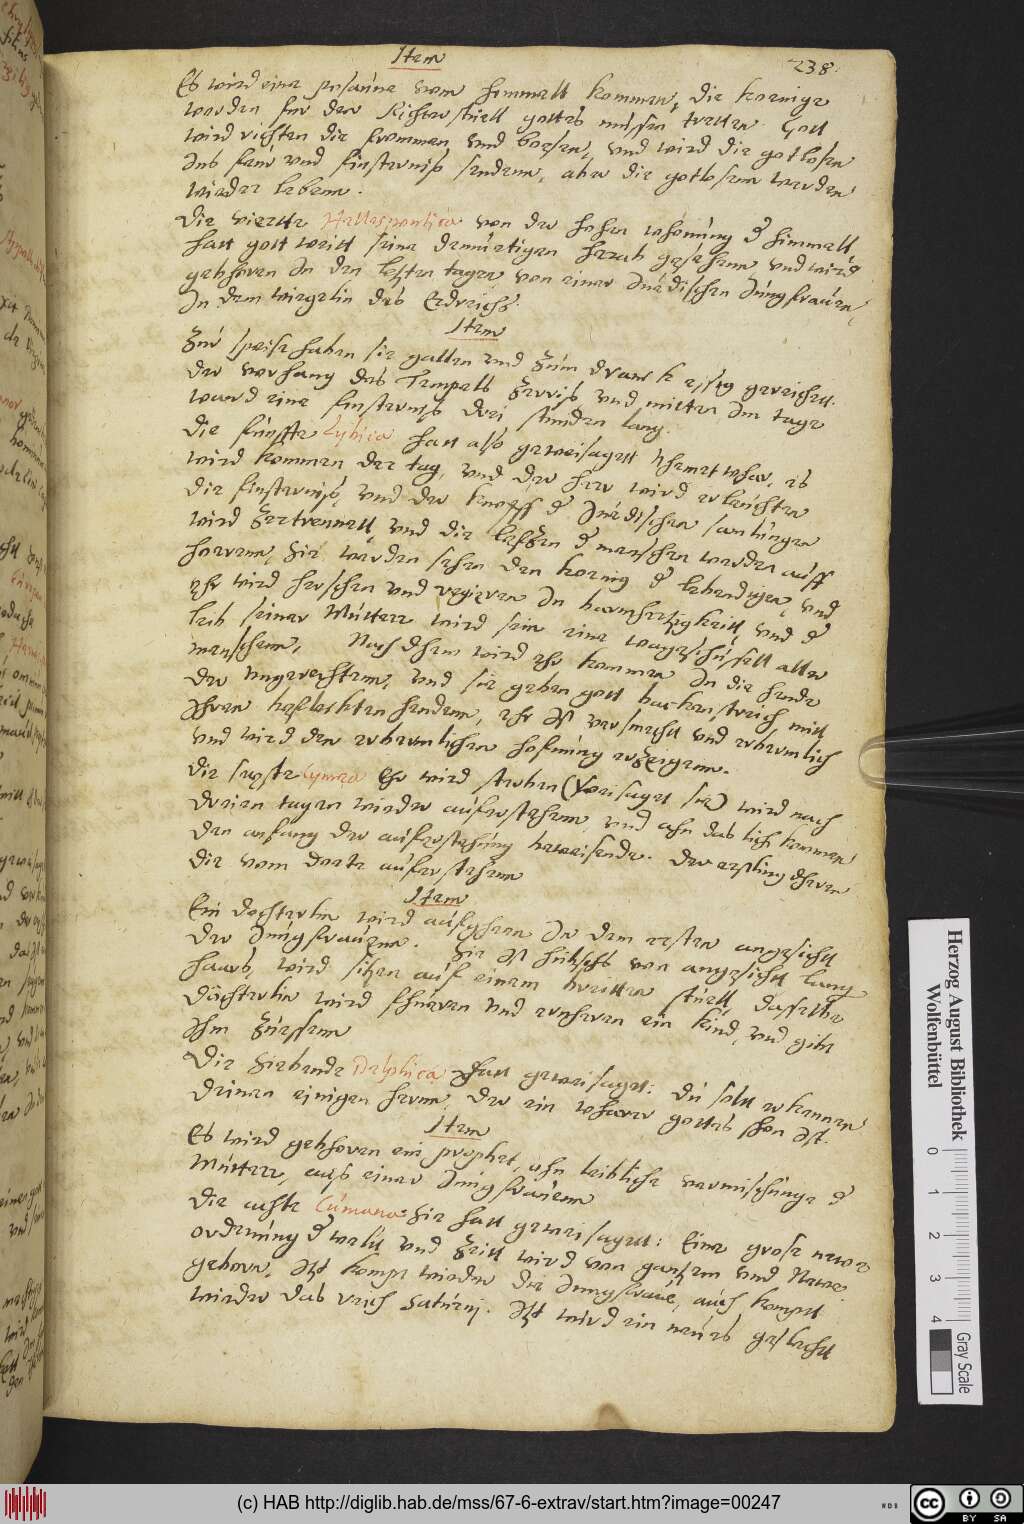 Item
238.
Es wird eine posaune vom hommell kommen, die koenige
werden fur den Richterstuell gottes müssen tretten. Gott
wird richten die frommen vnd boesen, vnd wird die gotlosen
Ins feür vnd finsterniß sendenn, aber die gotlosenn werden
wieder lebenn.
Die vierte Hellespontica von der hohen wohonung d himmell
hatt gott weitt seine demütigen herab gesehenn vnd wird
gebhoren In den letzten tagen, von einer Juedischen Jungkrauen,
In dem wiegelin des Erdreichs.
Item
Zur speise haben sie gallen vnd zum dranck essig gereichett.
der vorhang des Tempels zerriß vnd mitten Im tage
ward eine finsterniß drei stunden lang.
die fünffte Lybica hatt also geweisagett Nhemet whar, es
wird kommen der tag, vnd der herr wird erleüchten
die finsterniß, vnd der knopff d Juedischen samlungen
wird zertrennett, vnd die lefzen d menschen werden auff
hoerenn, sie werden sehen den koenig d lebendigen, vnd
ehr wird herschen vnd regieren In barmhertzigkeitt, vnd d
leib seiner Mütterr wird sein eine wagschüssell aller
menschenn, Nach dhem wird ehr kommen In die hende
der Ungerechtenn, vnd sie geben gott backenstreich mitt
Ihren befleckten hendenn, ehr Ist versmehett vnd erbermlich
vnd wird den erbermlichen hofnung erzeigenn.
die sexste Cymea Ehr wird sterben (Weisaget sie) wird nach
dreien tagen wieder auferstehenn, vnd ahn das licht kommen
den anfang der auferstehüng beweisende. der erstling dheren
die vom doete auferstehenn
Item
Ein dochterlin wird aufghenn In dem ersten angesicht
der Jungkraüenn. Sie Ist hübsch von angesicht lang
haars, wird sitzen auf einem breitten stüell, dasselbe
döchterlin wird fhueren vnd ernheren ein kind, vnd gibt
Ihm züessenn
Die Siebende Delphica Hatt geweisaget: du solt erkennen
deinen einigen herrn, der ein wharer gottes shon Ist.
Item
Es wird gebhoren ein prophet, ohn leibliche vermischunge d
Mütterr, aus einer Jungkraüenn
die achte Cümana: Sie hatt geweisaget: Eine grose newe
ordenung d weltt vnd zeitt wird von gantzem vnd Newe
geborn. Itzt kompt wieder die Jungkraue, auch kompt
wieder das reich Saturnj. Itzt wird ein neües geslecht
Herzog August Bibliothek
Wolfenbüttel
0 1 2 3 4
Gray Scale
(c) HAB http://diglib.hab.de/mss/67-6-extrav/start.htm?image=00247
WDB
cc BY SA